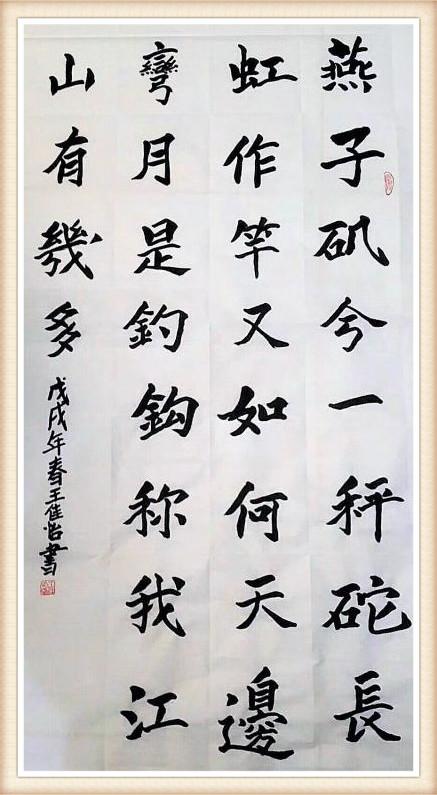 燕子矶今一秤砣長
虹作竿又如何天邊
彎月是釣鈎称我江
山有幾多
戊戌年春王佳浩書